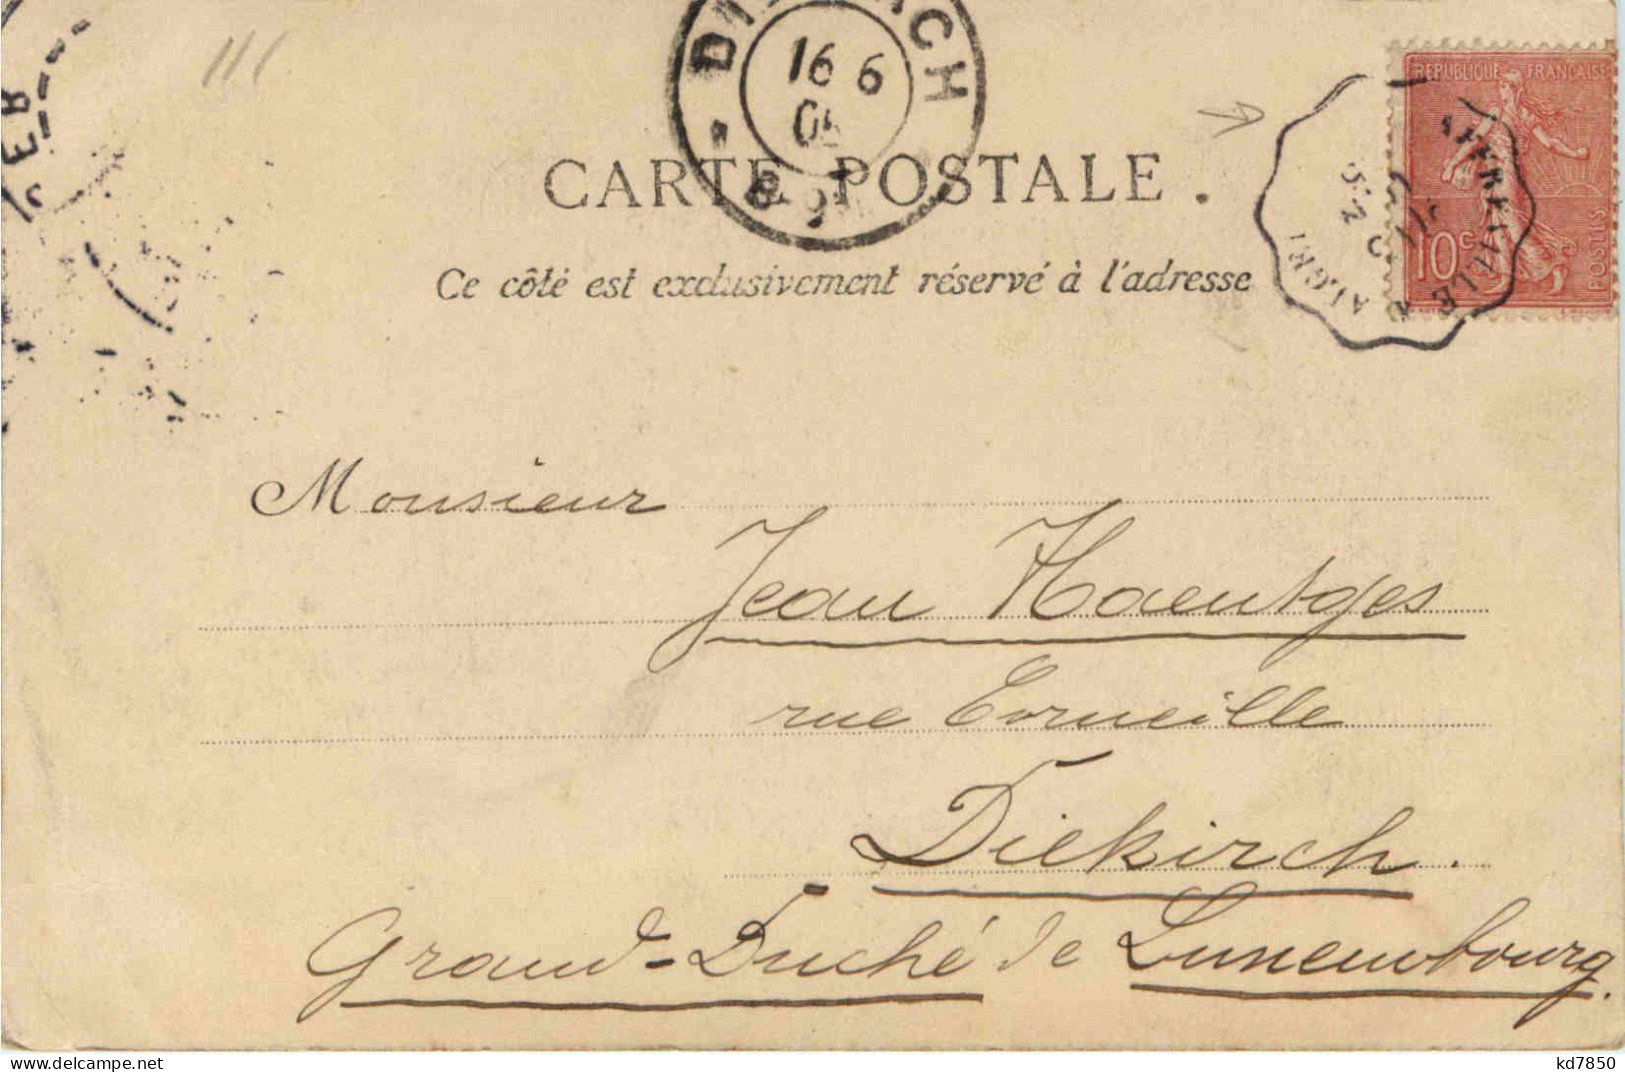 16 6
CARTE POSTALE.
Ce côté est exclusivement réservé à l'adresse
REPUBLIQUE FRANÇAISE
10c
POSTES
Monsieur
Jean Haentges
rue Corneille
Diekirch.
Grand-Duché de Luxembourg.
delcampe.net
kd7850